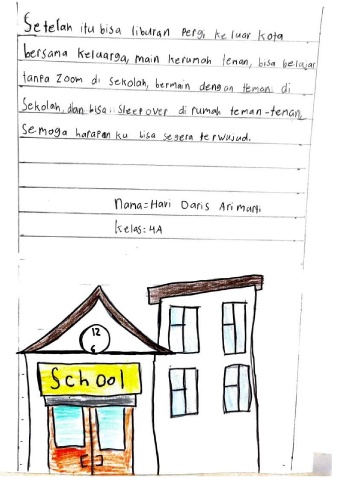 Setelah itu bisa liburan pergi keluar kota
bersama keluarga, main kerumah teman, bisa belajar
tanpa Zoom di sekolah, bermain dengan teman di
Sekolah, dan bisa sleepover di rumah teman-teman,
Semoga harapan ku bisa segera terwujud.
nama = Havi Daris Arimurti
kelas : 4A
12
6
School